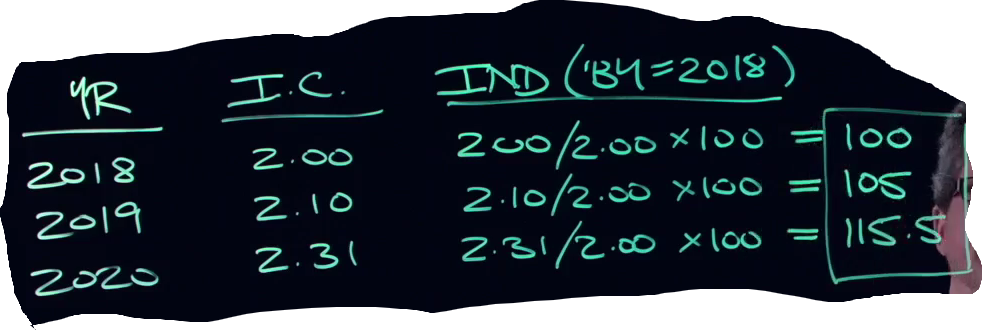 YR I.C. IND ('BY=2018)
2018 2.00 2.00/2.00 ×100 = 100
2019 2.10 2.10/2.00 ×100 = 105
2020 2.31 2.31/2.00 ×100 = 115.5